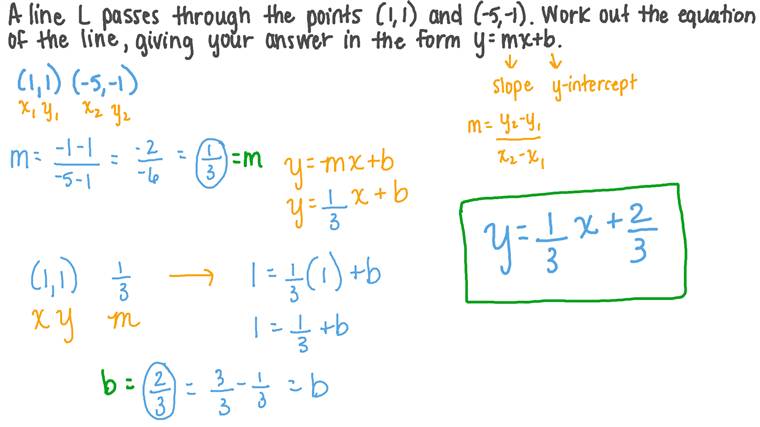 A line L passes through the points (1,1) and (-5,-1). Work out the equation
of the line, giving your answer in the form y=mx+b.
slope y-intercept
(1,1) (-5,-1)
x₁ y₁ x₂ y₂
m = (y₂-y₁)/(x₂-x₁)
m = (-1-1)/(-5-1) = -2/-6 = 1/3 = m
y=mx+b
y=1/3 x+b
y=1/3 x+2/3
(1,1) 1/3 → 1=1/3(1)+b
x y m
1=1/3+b
b = 2/3 = 3/3 - 1/3 = b